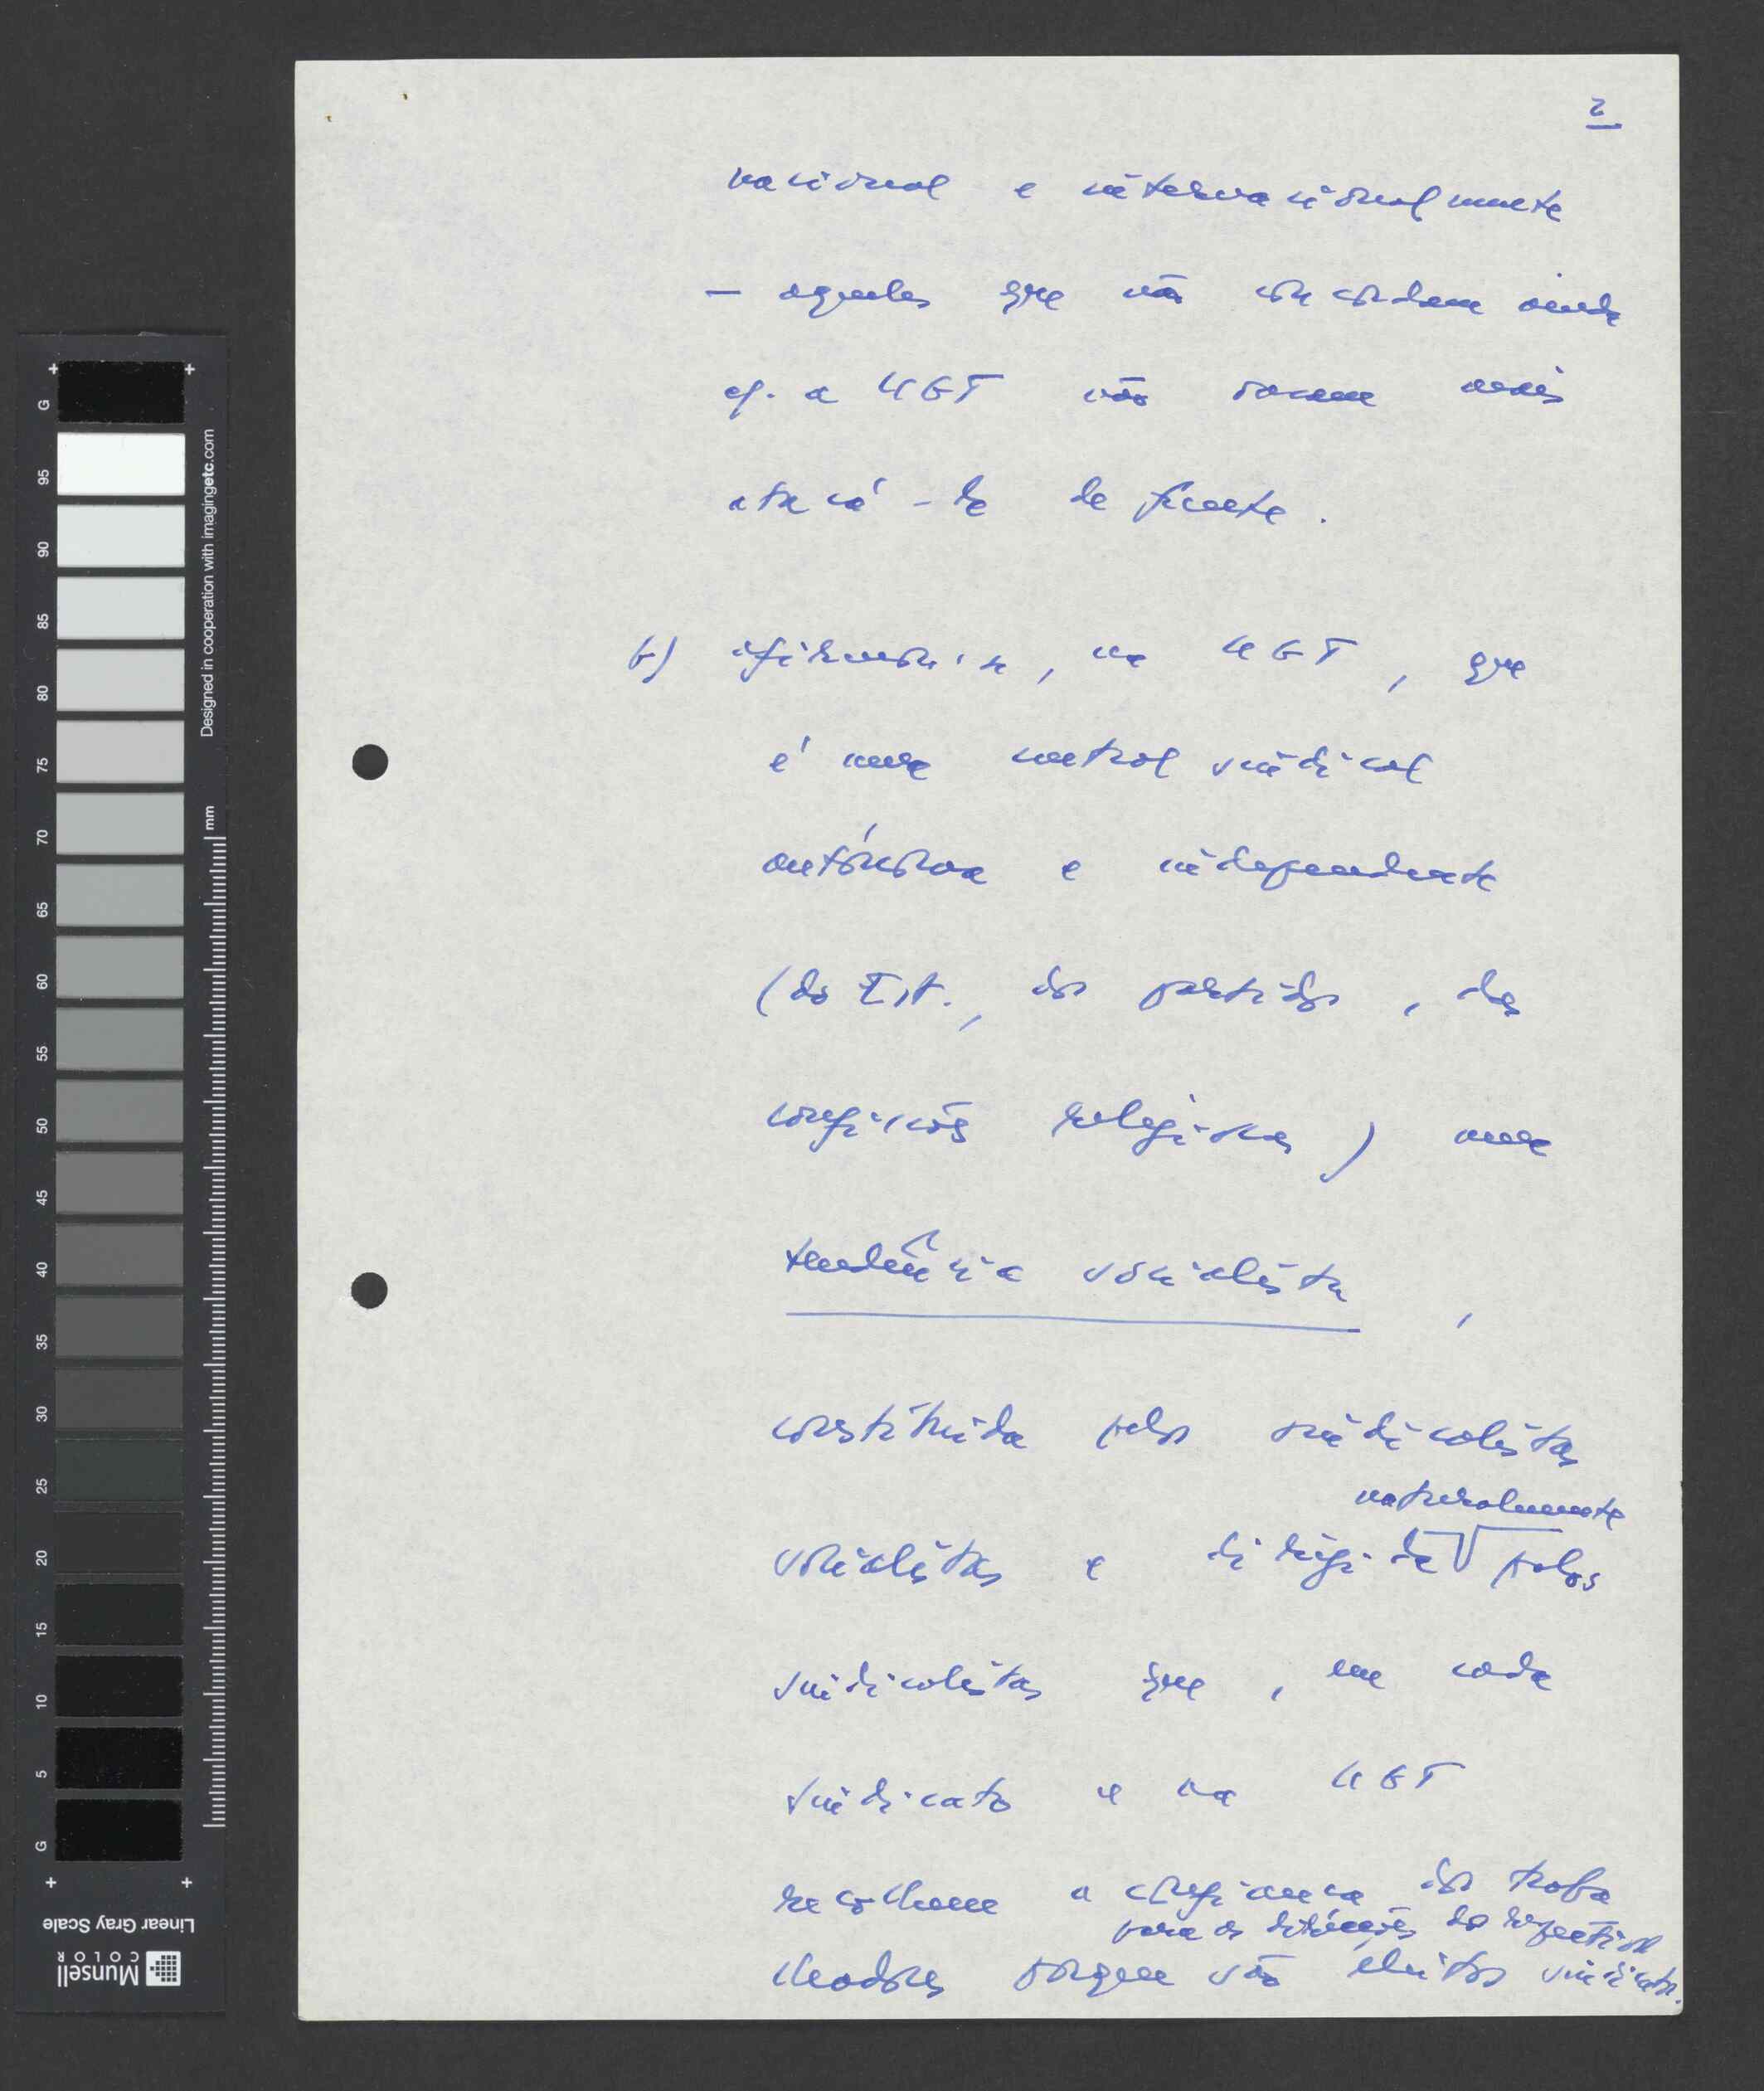 2
nacional e internacionalmente
— aqueles que não concordam ainda
c/. a UGT não ousam mais
atacá-la de frente.
b) afirmou-se, na UGT, que
é uma central sindical
autónoma e independente
(do Est., dos partidos, das
confissões religiosas) uma
tendência socialista,
constituída pelos sindicalistas
naturalmente
socialistas e dirigida pelos
sindicalistas que, em cada
sindicato e na UGT
recolhem a confiança dos traba
para as direcções dos respectivos
lhadores porque são eleitos sindicatos.
G
95
90
85
80
75
70
65
60
55
50
45
40
35
30
25
20
15
10
5
G
mm
Designed in cooperation with imagingetc.com
Linear Gray Scale
Munsell
COLOR